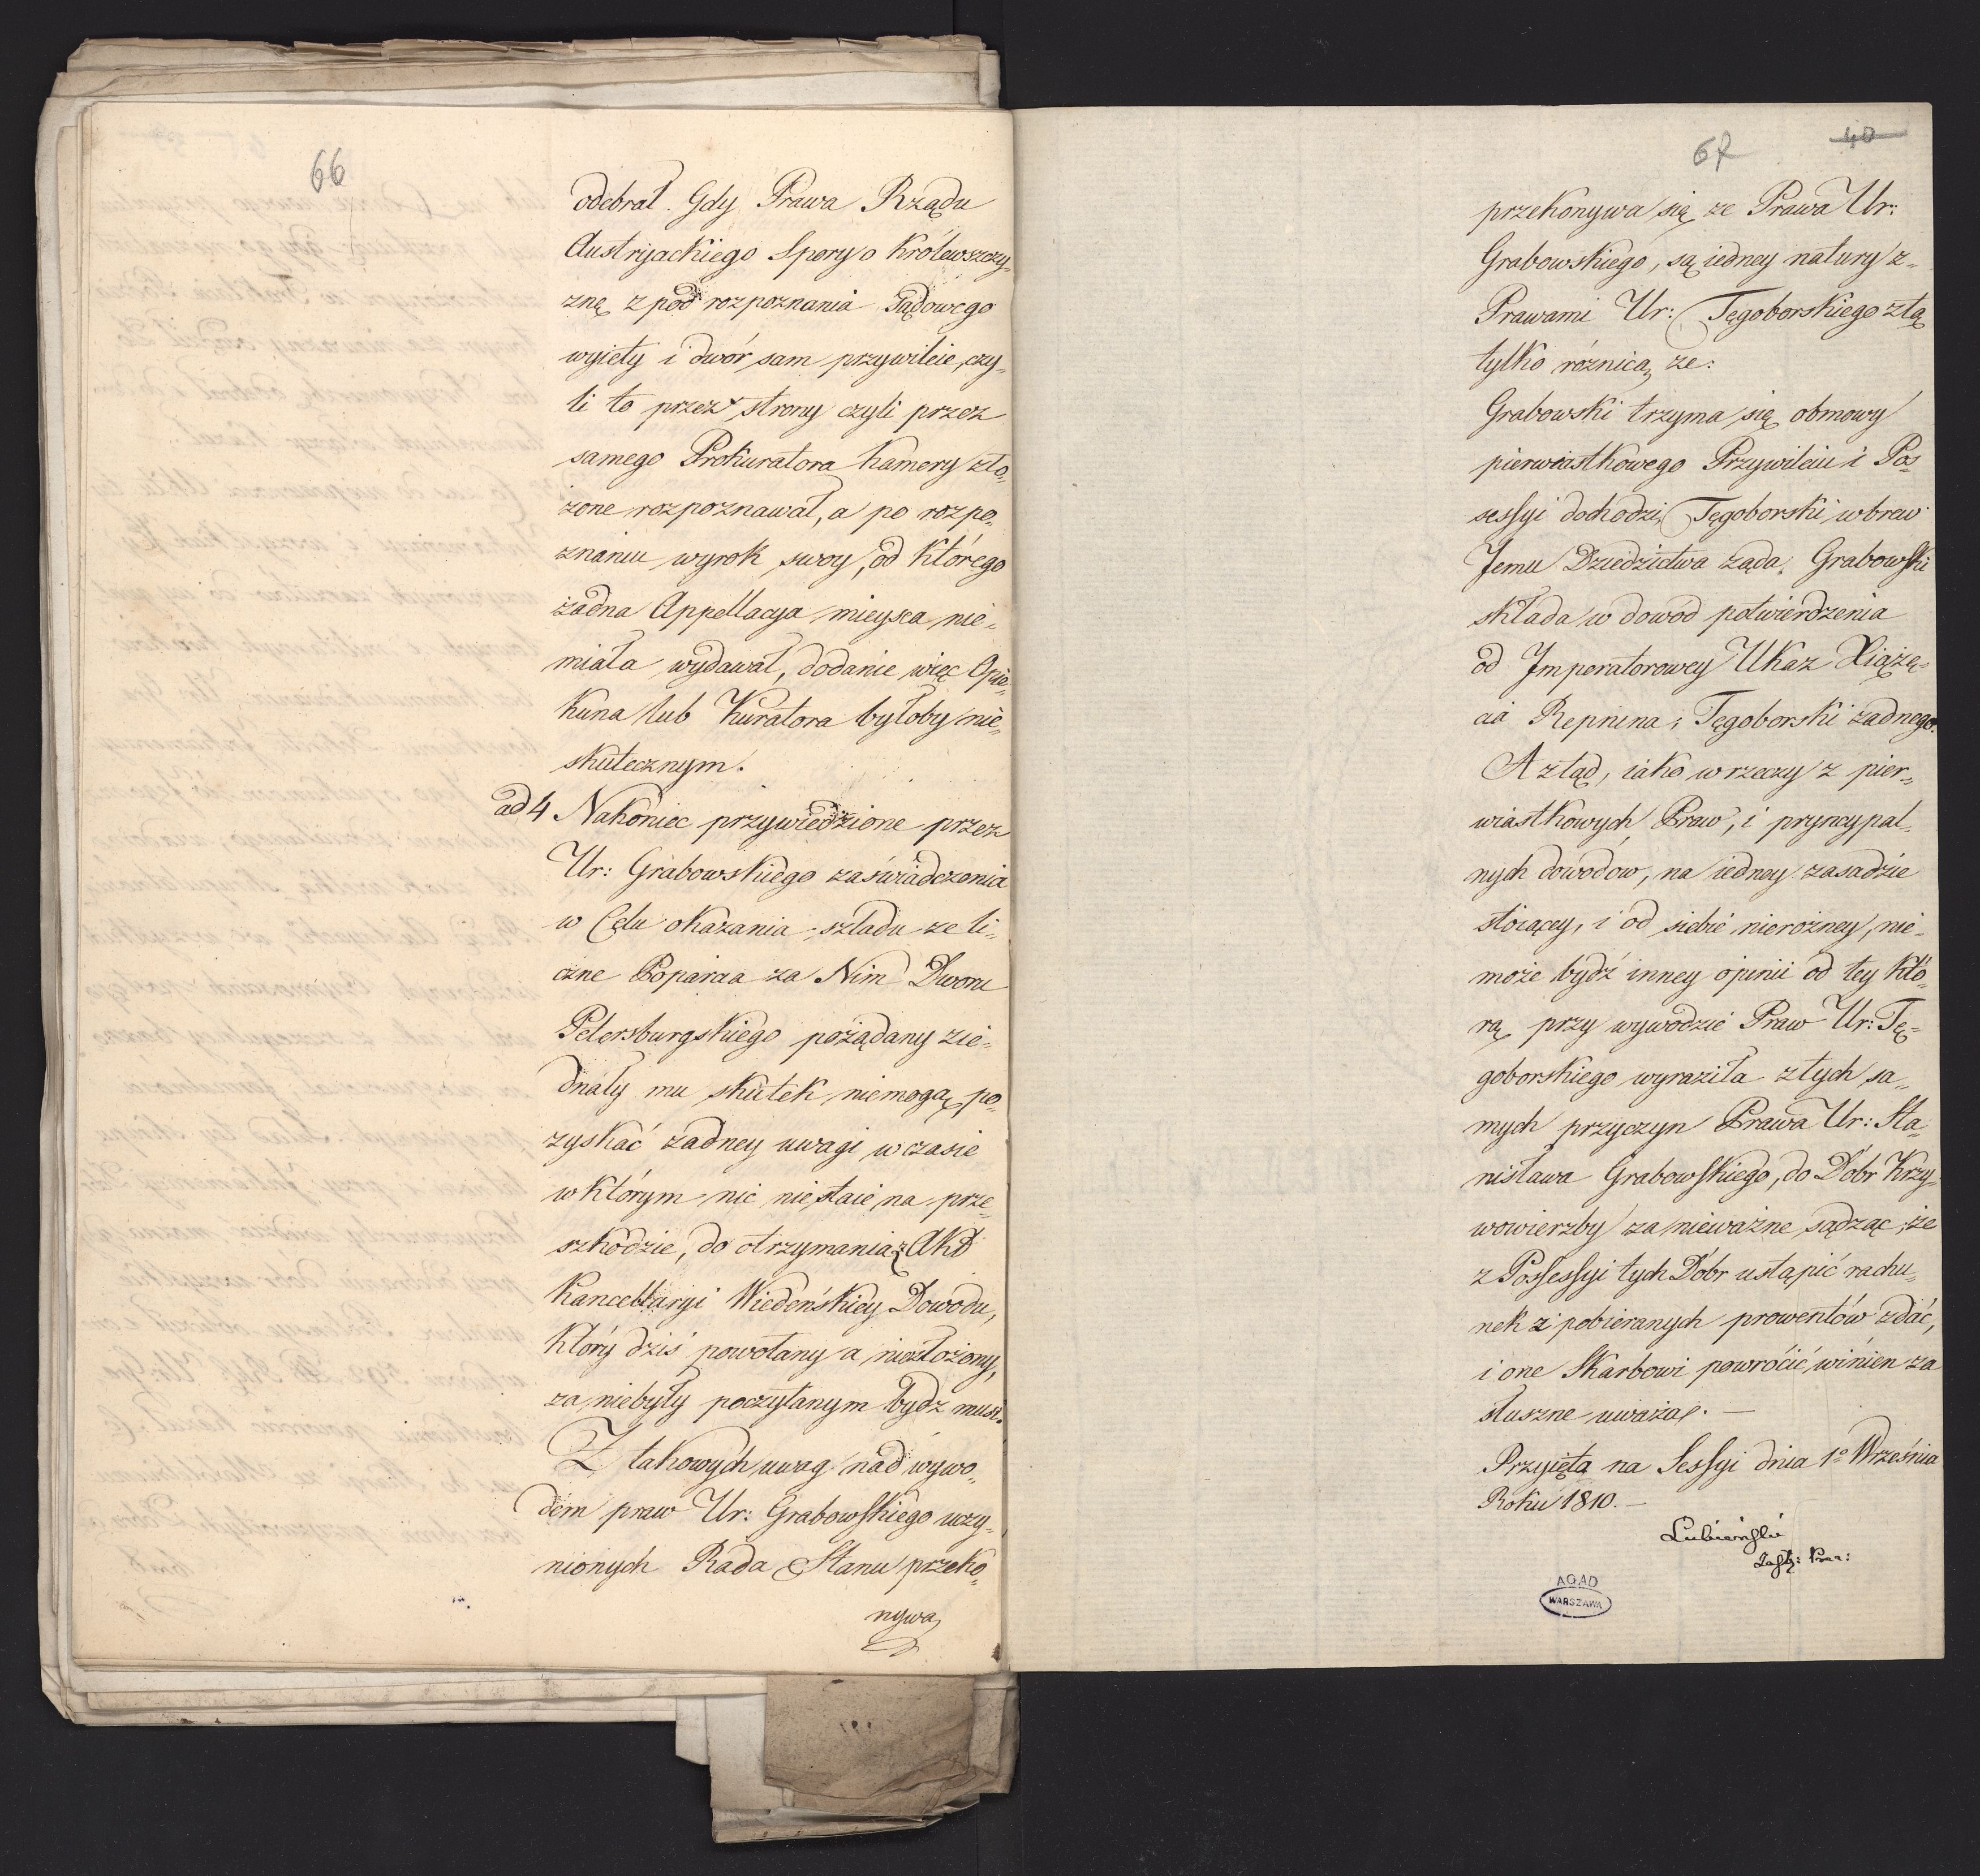 66
odebrał. Gdy Prawa Rządu
Austryackiego Spory o Królewszczy„
znę z pod rozpoznania Sądowego
wyięty i dwór sam przywileie, czy„
li to przez strony czyli przez
samego Prokuratora Kamery zło„
żone rozpoznawał, a po rozpo„
znaniu wyrok swoy, od którego
żadna Appellacya mieysca nie„
miała wydawał, dodanie więc Opie„
kuna lub Kuratora byłoby nie„
skutecznym.
ad 4 Nakoniec przywiedzione przez
Ur: Grabowskiego zaświadczenia
w Celu okazania szladu ze li„
czne Poparcia za Nim Dworu
Petersburgskiego pożądany zie„
dnały mu skutek niemogą po„
zyskać żadney uwagi w czasie
w którym nic niestaie na prze„
szkodzie, do otrzymania z Akt
Kancellaryi Wiedeńskiey Dowodu,
który dziś powołany a niezłożony,
za niebyły poczytanym bydź musi.
Z takowych uwag nad wywo„
dem praw Ur: Grabowskiego uczy„
nionych Rada Stanu przeko„
nywa
67
40
przekonywa się ze Prawa Ur:
Grabowskiego, są iedney natury z„
Prawami Ur: Tęgoborskiego z tą
tylko róźnicą, ze:
Grabowski trzyma się obmowy
pierwiastkowego Przywileiu i Pos„
sessyi dochodzi, Tęgoborski wbrew
Jemu Dziedzictwa żąda, Grabowski
składa w dowód potwierdzenia
od Imperatorowey Ukaz Xiążę„
cia Repnina, Tęgoborski żadnego.
A ztąd, iako w rzeczy z pier„
wiastkowych Praw, i pryncypal„
nych dowodów, na iedney zasadzie
stoiącey, i od siebie nierożney, nie„
może bydź inney opinii od tey któ„
rą przy wywodzie Praw Ur: Tę„
goborskiego wyraziła z tych sa„
mych przyczyn Prawa Ur: Sta„
nisława Grabowskiego, do Dóbr Krzy„
wowierzby za nieważne sądząc, że
z Possessyi tych Dóbr ustąpić rachu„
nek z pobieranych prowentów zdać,
i one Skarbowi powrócić winien za
słuszne uważa.
Przyięta na Sessyi dnia 1º Września
Roku 1810.
Lubieński
Zastę: Prez:
AGAD
WARSZAWA